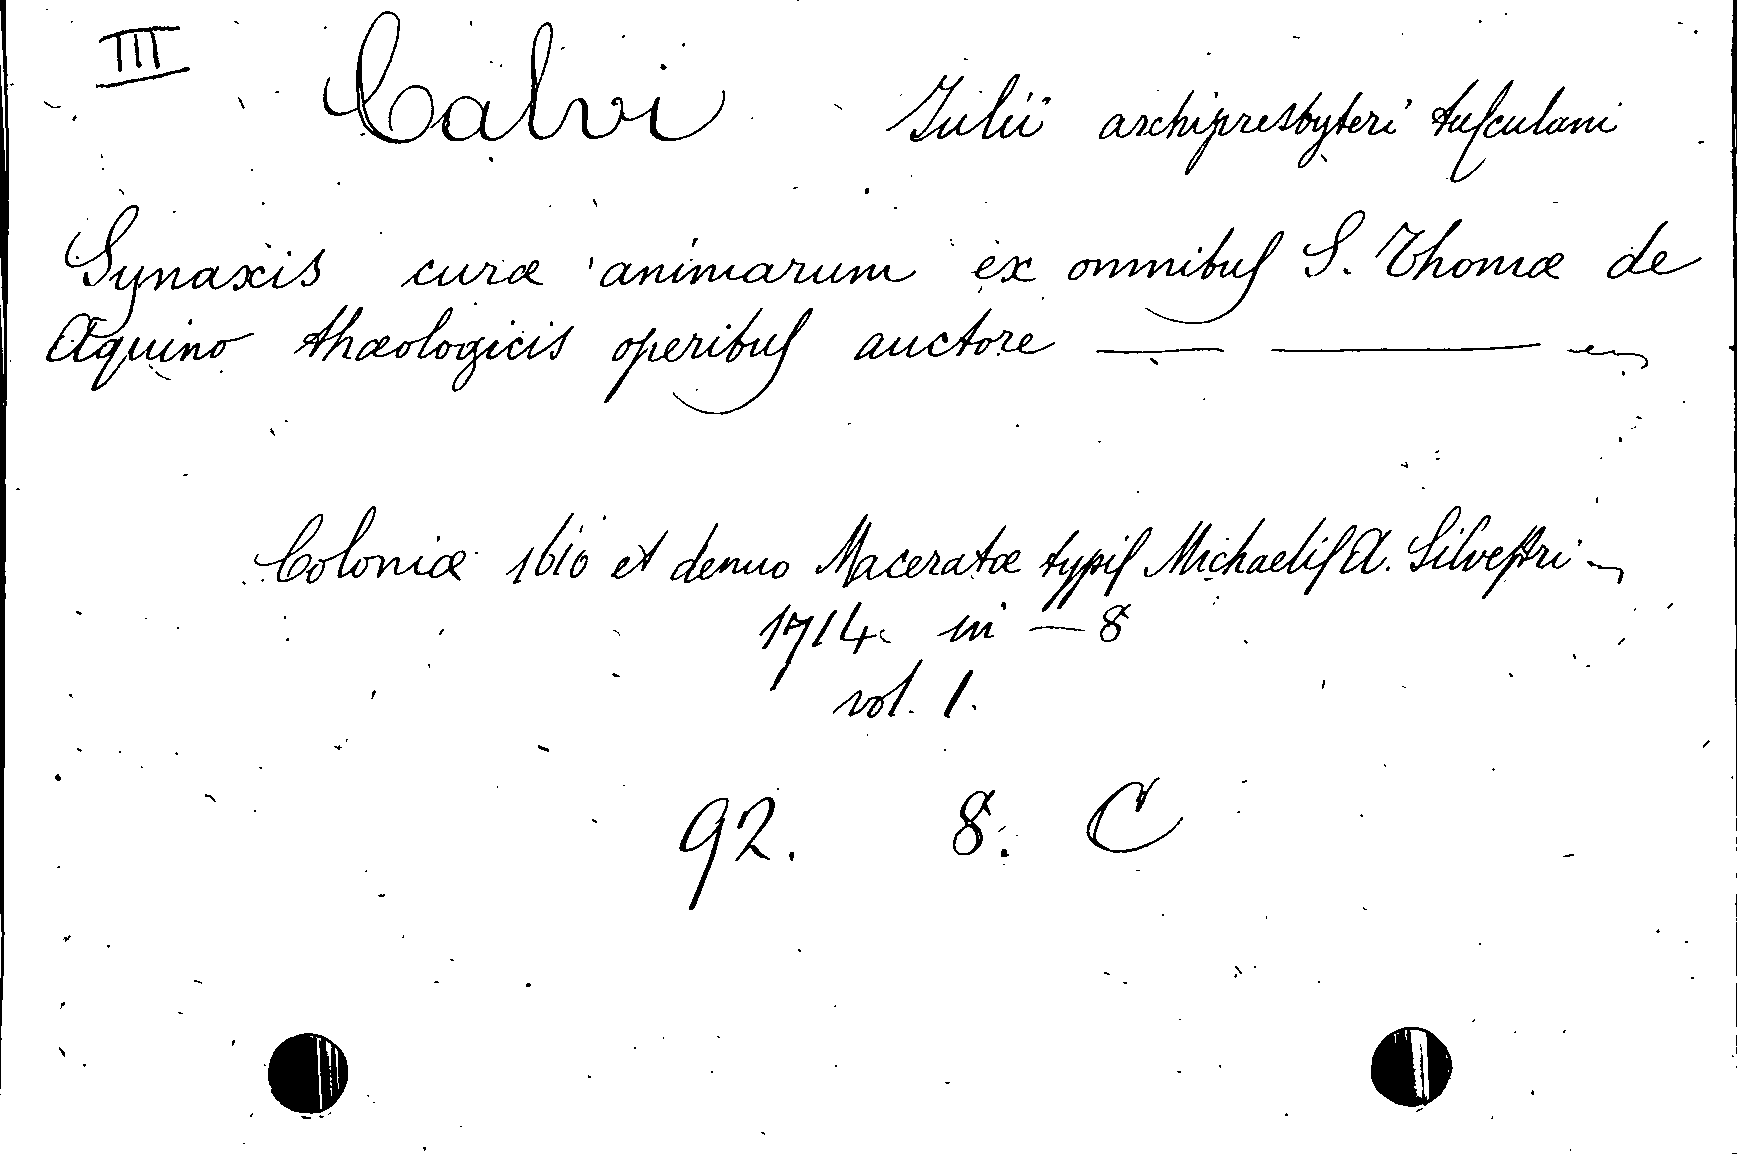 III Calvi Julii archipresbyteri tusculani
Synaxis curæ animarum ex omnibus S. Thomæ de
Aquino thæologicis operibus auctore — —
Coloniæ 1610 et denuo Maceratæ typis Michaelis A. Silvestri
1714. in — 8
vol. 1.
92. 8. C